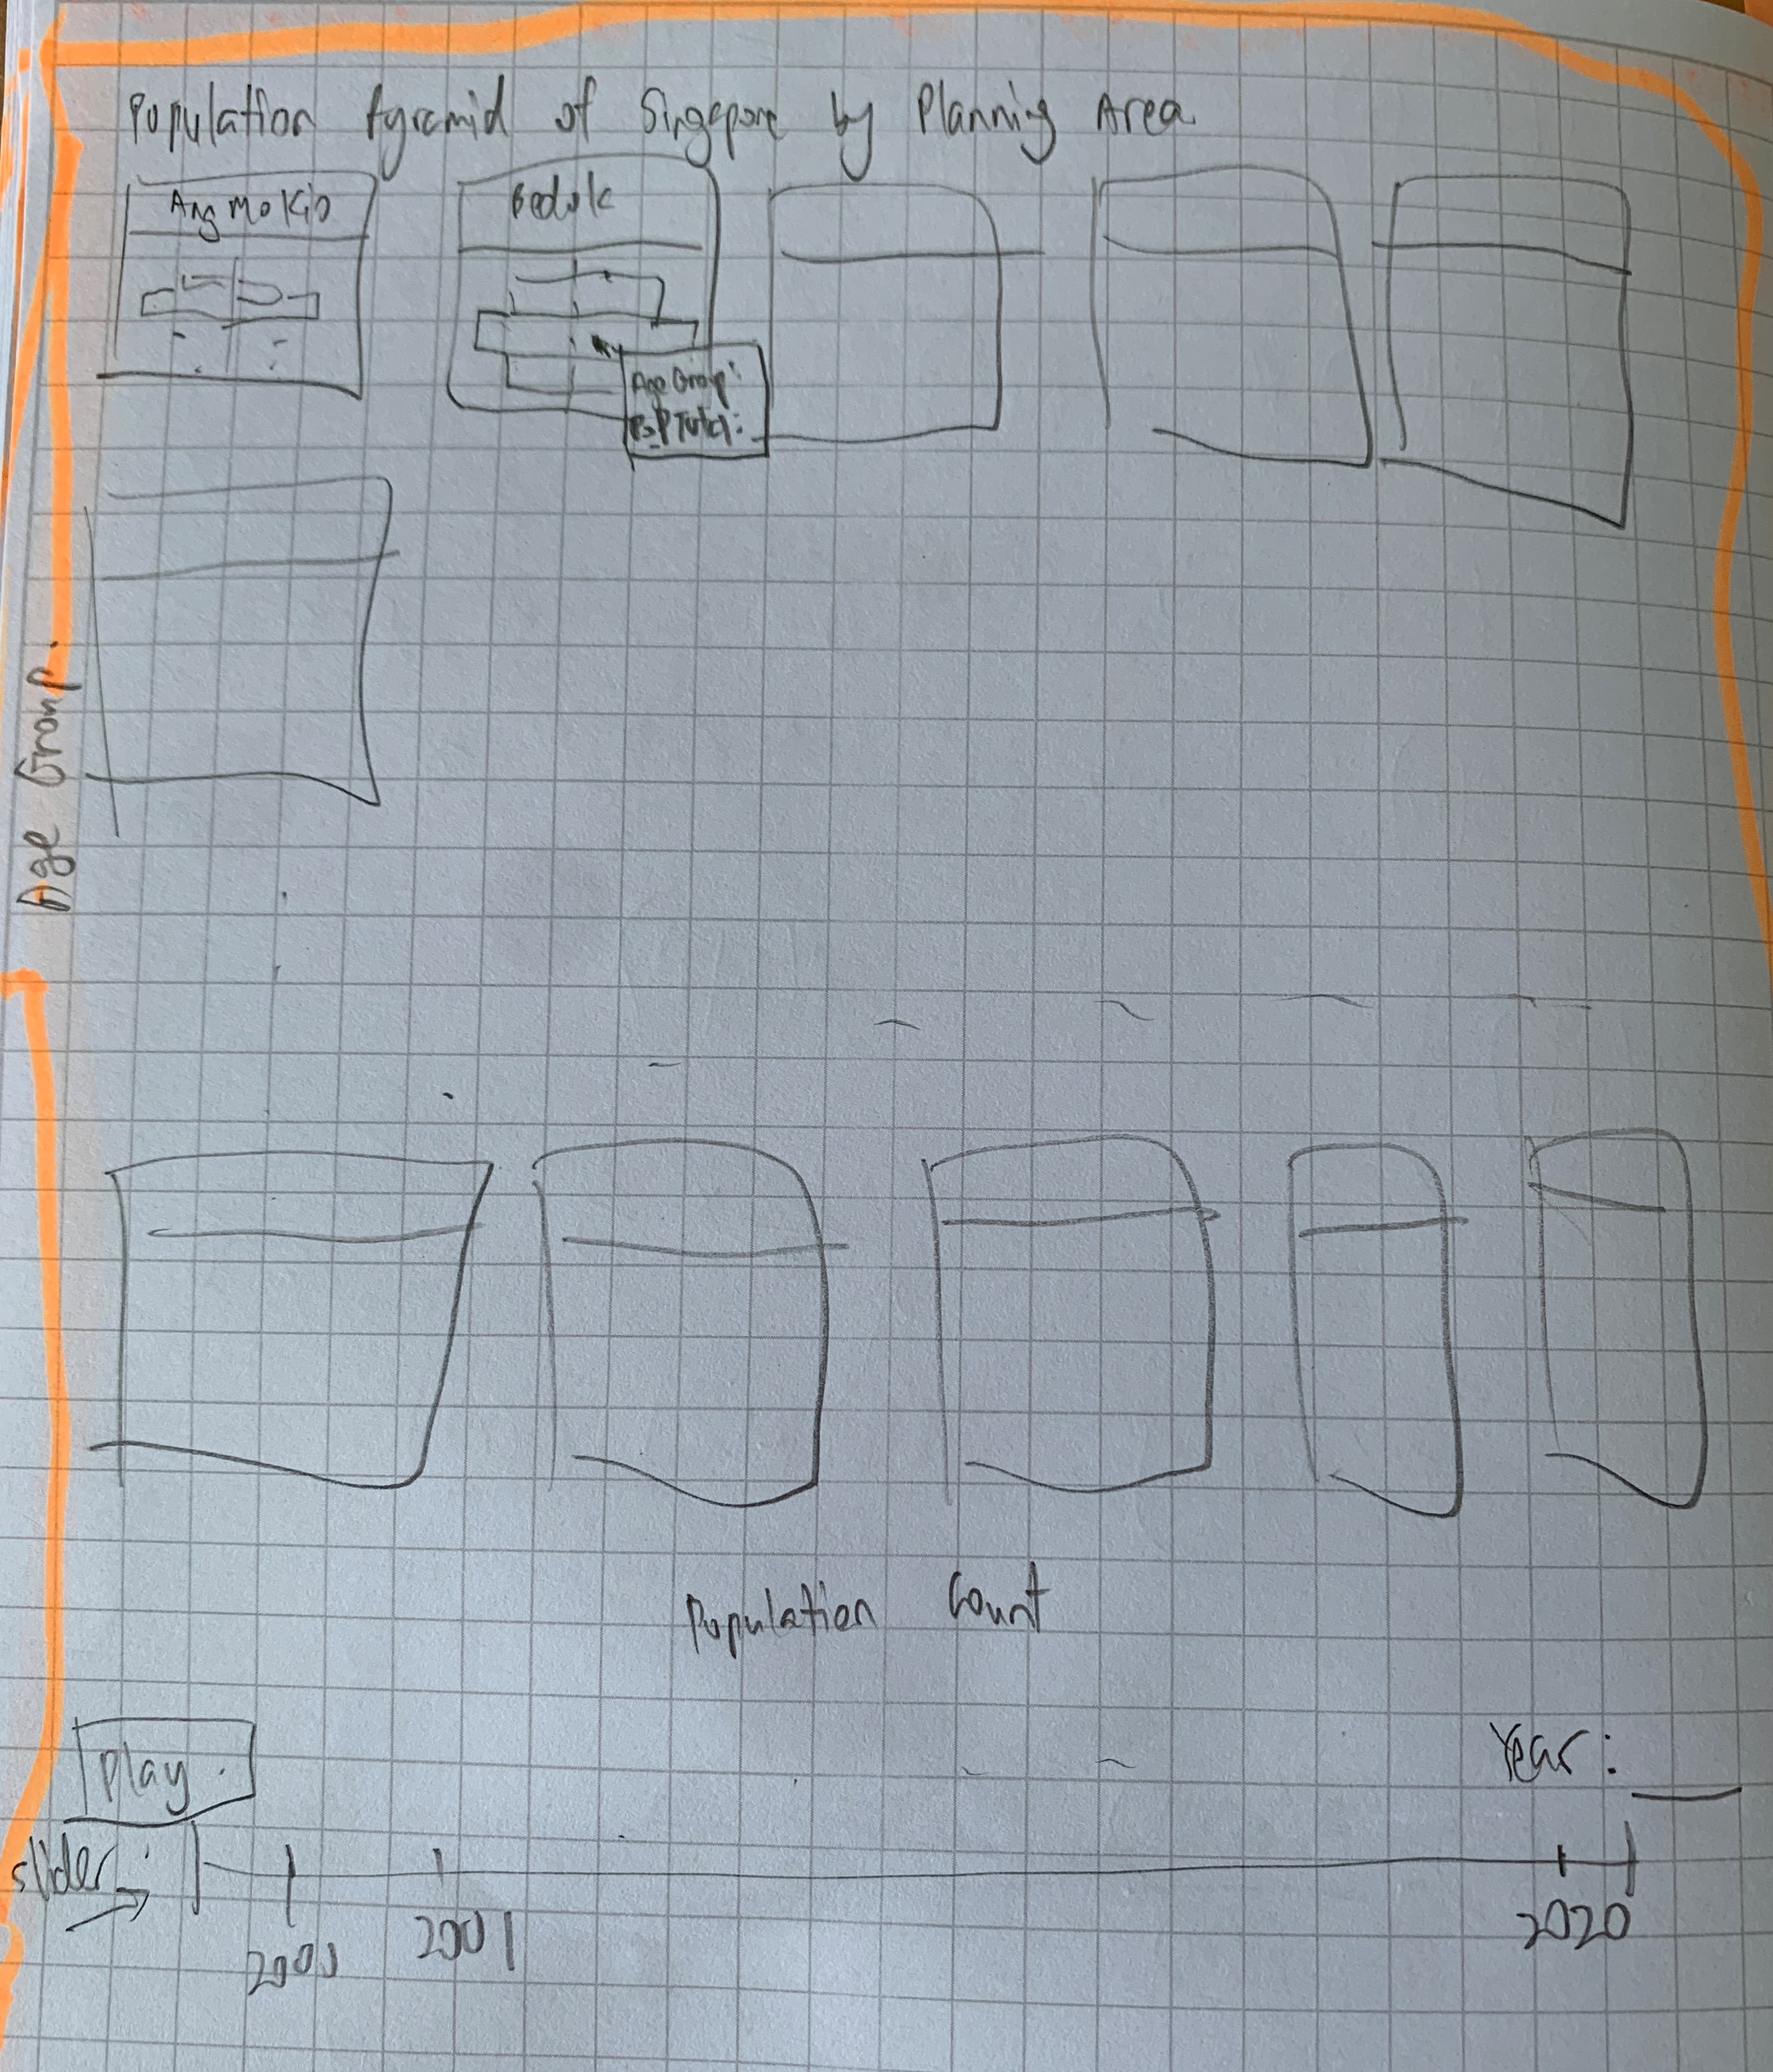 Population Pyramid of Singapore by Planning Area
Ang Mo Kio
Bedok
Age Group:
Pop Total:
Age Group.
Population Count
Play
Year:
slider
2000
2001
2020